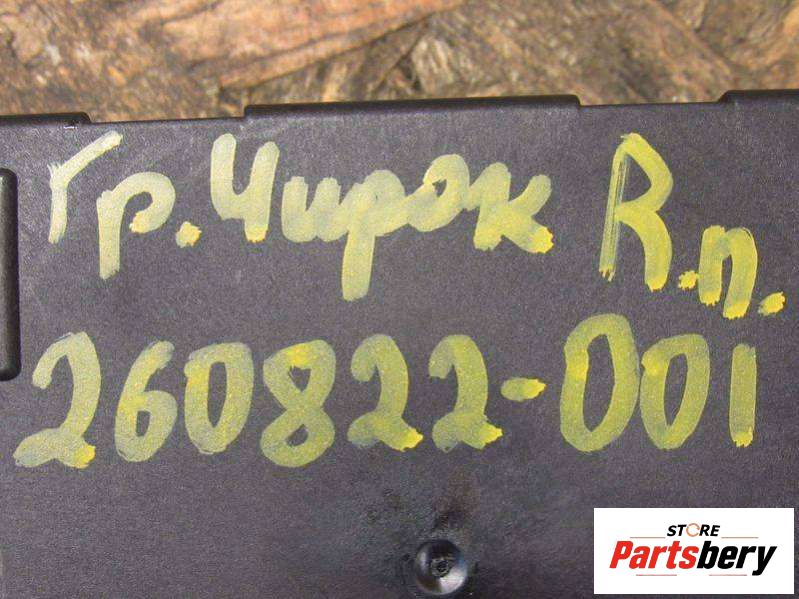 Гр. Чирок R.п.
260822-001
STORE
Partsbery